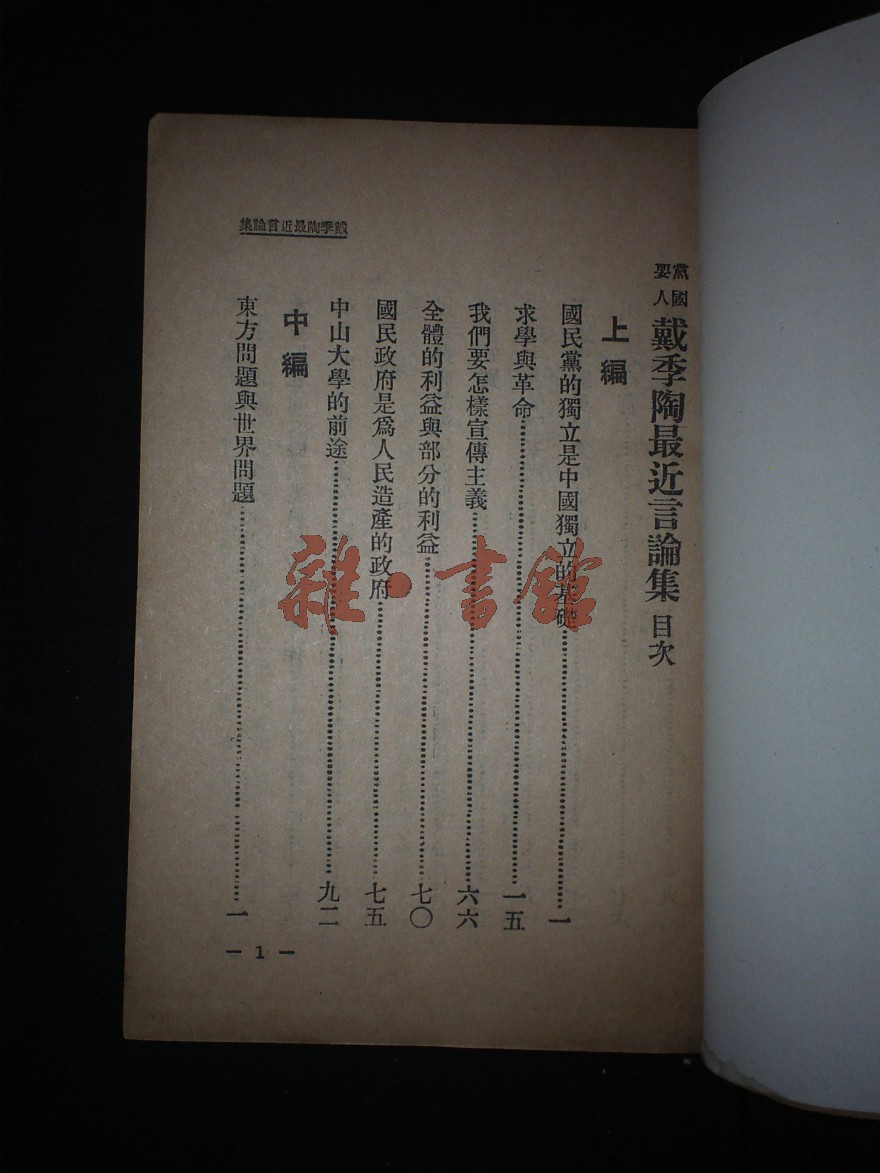 黨國要人 戴季陶最近言論集 目次
上編
國民黨的獨立是中國獨立的基礎…………一
求學與革命…………一五
我們要怎樣宣傳主義…………六六
全體的利益與部分的利益…………七〇
國民政府是爲人民造產的政府…………七五
中山大學的前途…………九二
中編
東方問題與世界問題…………一
戴季陶最近言論集
— 1 —
雜·書館